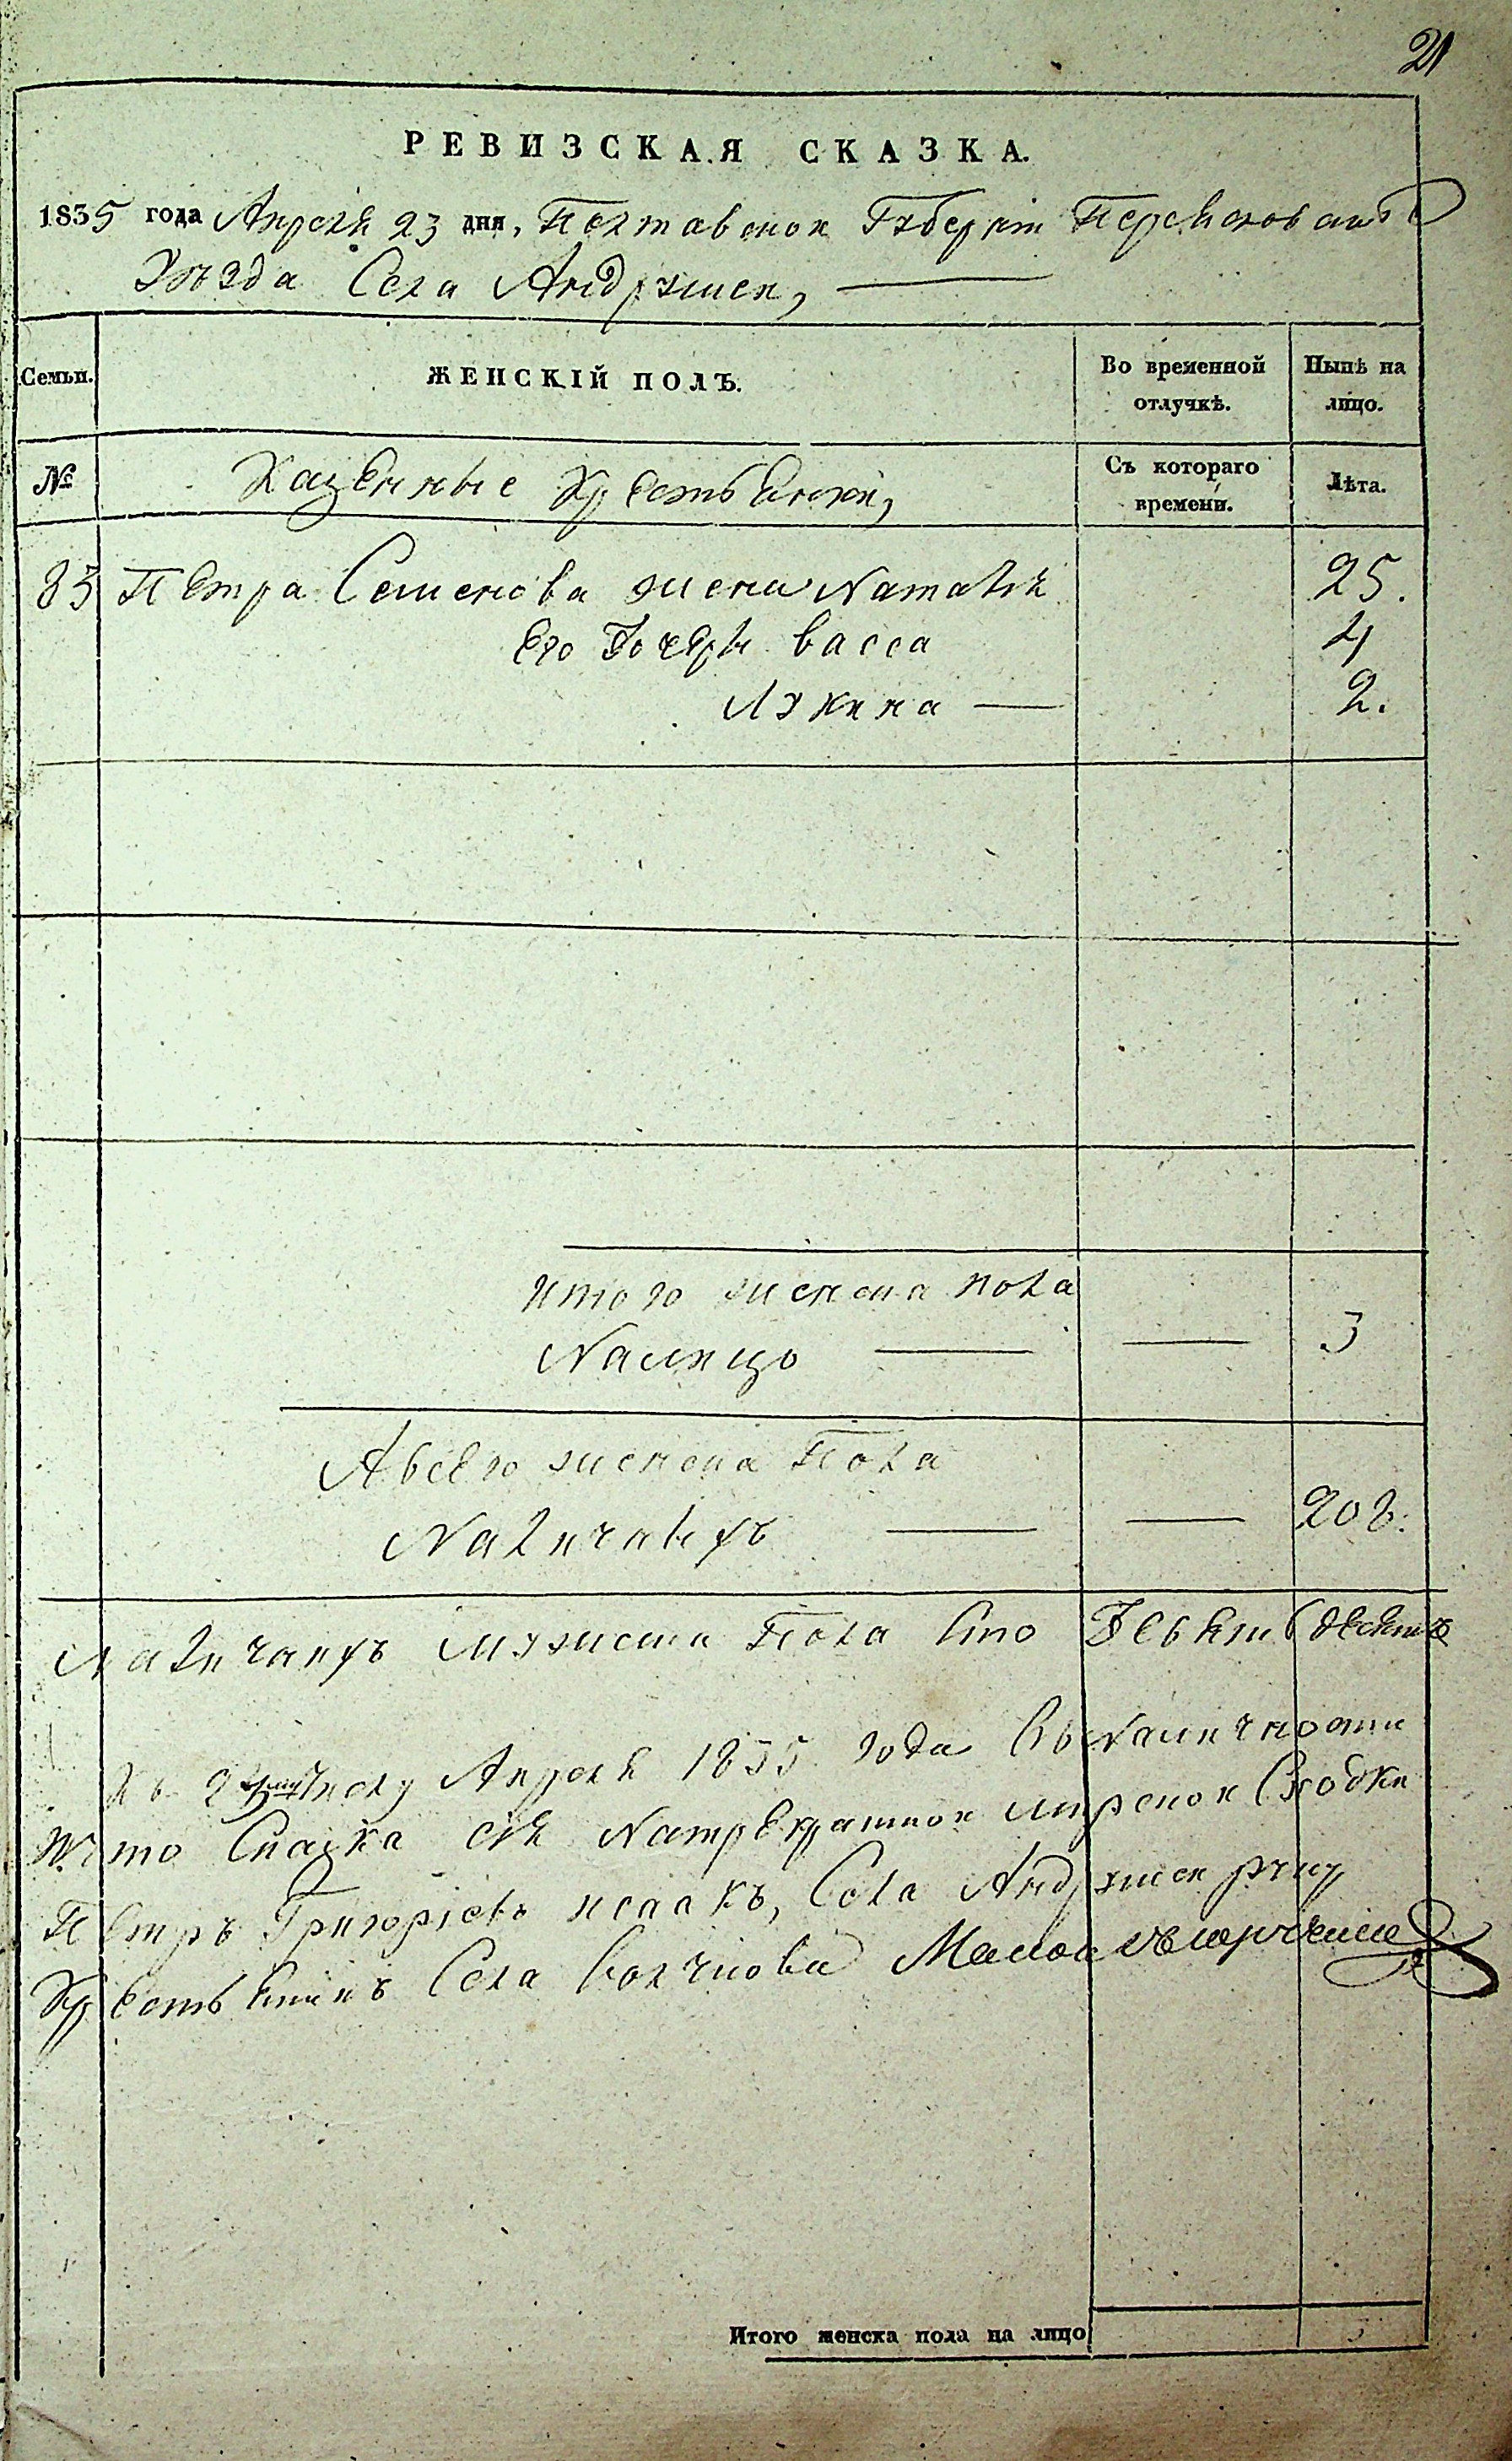 21
РЕВИЗСКАЯ СКАЗКА.
1835 года Апреля 23 дня, Полтавской Губерніи Переясловскаго
Уѣзда Села Андрушек,
Семьи. ЖЕНСКІЙ ПОЛЪ. Во временной отлучкѣ. Нынѣ на лицо.
№ Казенные Крестьяне, Съ котораго времени. Лѣта.
83 Петра Семенова жена Наталія 25.
Его дочери Васса 4
Лукина — 2.
Итого женска пола
Налицо — — 3
А всего женска Пола
Наличныхъ — — 208.
Наличныхъ мужеска Пола Сто Девять десятъ
Къ 23 числу Апреля 1835 года въ Наличности
что Сказка сія
Петръ Григоріевъ Исаакъ, Села Андрушек
Крестьянинъ Села
Итого женска пола на лицо 3